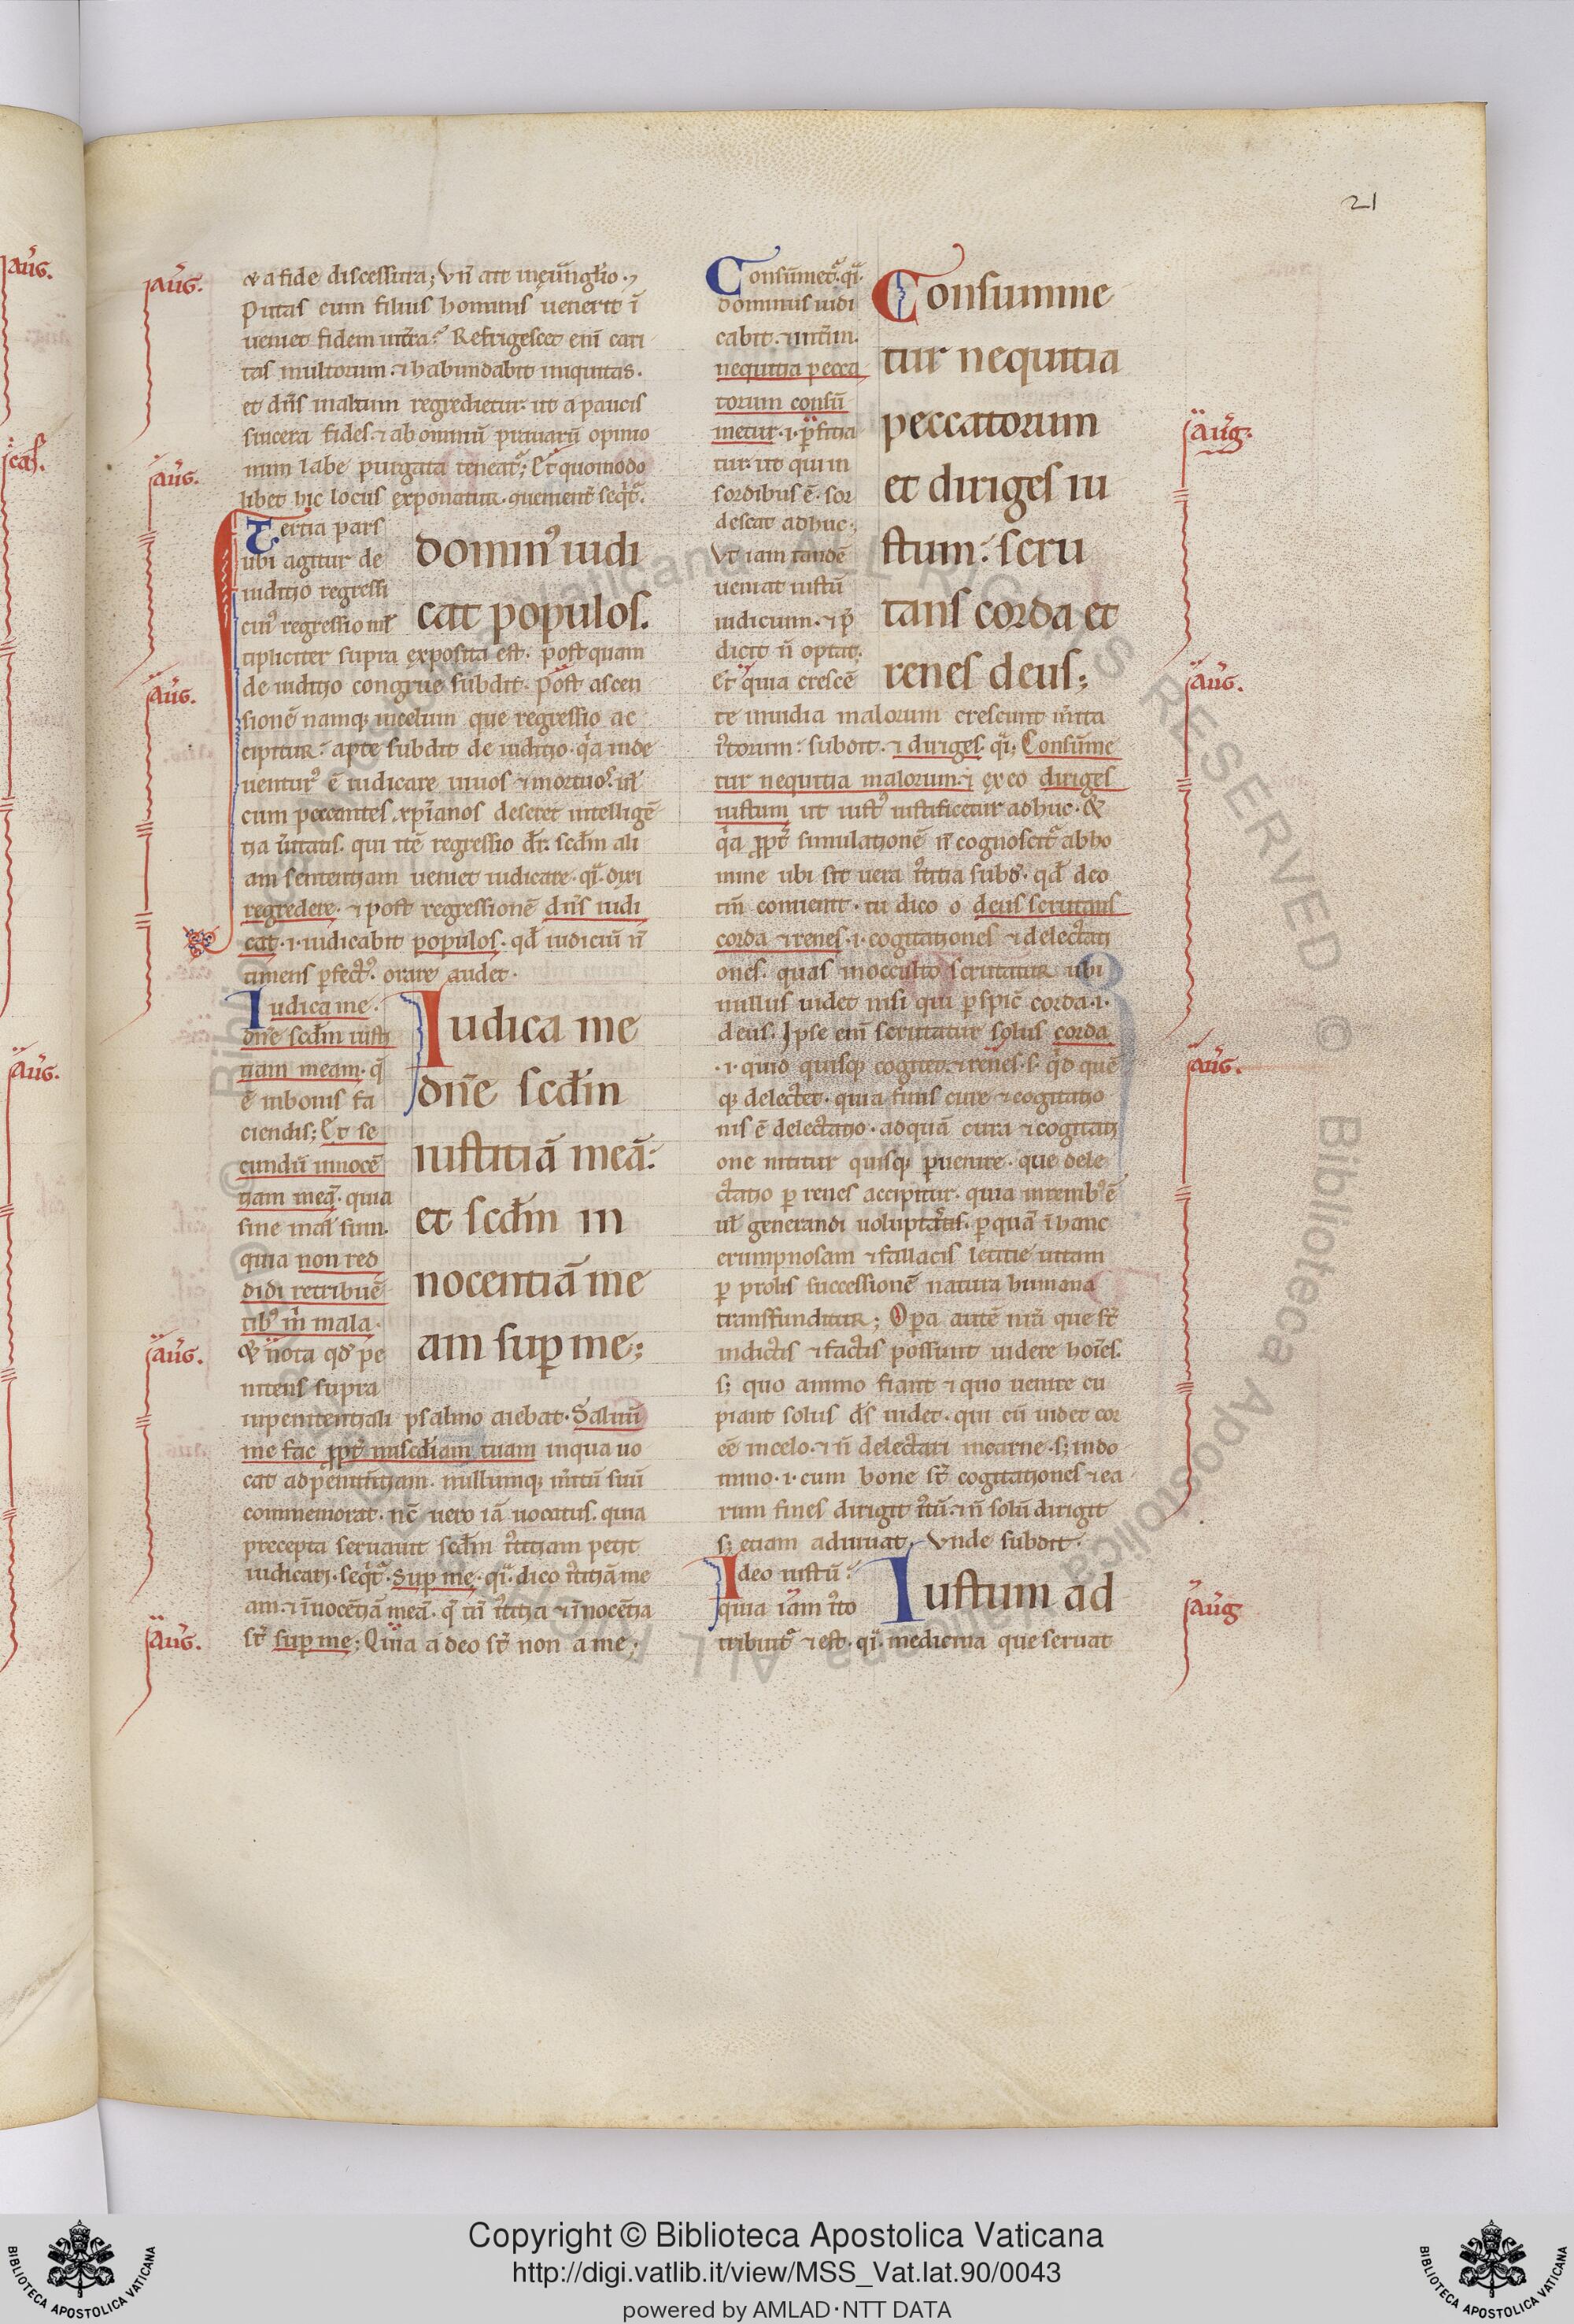 21
aug.
& a fide discessura; Vn̄ ait in eūngl̄io.
Putas cum filius hominis uenerit ī
ueniet fidem in t̄ra? Refrigescet enī cari
tas multorum. ⁊ habundabit iniquitas.
et dn̄s in altum regredietur. ut a paucis
sincera fides ⁊ ab omniū prauarū opinio
num labe purgata teneat᷑; Et quomodo
libet hic locus exponatur. conuenient̄ seqt᷑.
Tertia pars
ubi agitur de
iuditio regressi
cui᷒ regressio ml̄
tipliciter supra exposita est. post quam
de iuditio congrue subdit. Post ascen
sionē namq; in celum que regressio ac
cipitur: apte subdit de iuditio. q̇a inde
uentur᷒ ē iudicare uiuos ⁊ mortuos. ul̄
cum peccantes xp̄ianos deseret intelligē
tia ūitatis. qui itē regressio dr̄. scd̄m ali
am sententiam ueniet iudicare. q̄i. dixi
regredere. ⁊ post regressionē dn̄s iudi
cat .i. iudicabit populos. qd̄ iudiciū n̄
timens ꝑfect᷒. orare audet.
domin᷒ iudi
cat populos.
Iudica me.
dn̄e scd̄m iusti
tiam meam. q̄
ē in bonis fa
ciendis; Et se
cundū innocē
tiam meā. quia
sine mal̄ sum.
quia non red
didi retribuē
tib᷒ m̄ mala.
& nota qd̄ pe
nitens supra
in penitentiali psalmo aiebat. Saluū
me fac ꝓpt̄ misc̄diam tuam in qua uo
cat ad penitentiam. nullumq; m̄itū suū
commemorat. nc̄ uero iā uocatus. quia
precepta seruauit scd̄m i᷒titiam petit
iudicari. seqt᷑. Sup me. q̄i. dico i᷒titiā me
am ⁊ īnocētiā meā. q̄ tn̄ i᷒titia ⁊ īnocētia
st̄ sup me; Quia a deo st̄ non a me;
Iudica me
dn̄e scd̄m
iustitiā meā:
et scd̄m in
nocentiā me
am sup me;
Consūmet᷑. q̄i.
dominus iudi
cabit. ⁊ int̄im.
nequitia pecca
torum consū
metur .i. ꝑfitia
tur. ut qui in
sordibus ē. sor
descat adhuc.
Vt iam tandē
ueniat iustū
iudicium. ⁊ p̄
dicit n̄ optat;
Et quia crescē
te inuidia malorum crescunt m̄ita
i᷒torum: subdit. ⁊ diriges. q̄i; Consūme
tur nequitia malorum. ⁊ ex eo diriges
iustum ut iust᷒ iustificetur adhuc. &
q̇a ꝓpt̄ simulationē n̄ cognoscit᷑ ab ho
mine ubi sit uera i᷒titia subd̄. qd̄ deo
tm̄ conuenit. tu dico o deus scrutans
corda ⁊ renes .i. cogitationes ⁊ delectati
ones. quas in occulto scrutatur ubi
nullus uidet nisi qui ꝑspic̄ corda .i.
deus. Ipse enī scrutatur solus corda
.i. quid quisq; cogitet. ⁊ renes .s. qd̄ quē
q; delectet. quia finis cure ⁊ cogitatio
nis ē delectatio. ad quā cura ⁊ cogitati
one nititur quisq; ꝑuenire. que dele
ctatio ꝑ renes accipitur. quia in renib᷒ ē
uis generandi uoluptatis. ꝑ quā ī hanc
erumpnosam ⁊ fallacis letitie uitam
ꝑ prolis successionē natura humana
transfunditur; Opa autē nr̄a que st̄
in dictis ⁊ factis possunt uidere hoīes.
s; quo animo fiant ⁊ quo uenire cu
piant solus ds̄ uidet. qui cū uidet cor
eē in celo. ⁊ n̄ delectari in carne. s; in do
mino .i. cum bone st̄ cogitationes ⁊ ea
rum fines dirigit i᷒tū. ⁊ n̄ solū dirigit
s; etiam adiuuat. Vnde subdit.
Ideo iustū:
quia iam i᷒to
tribuit᷑ ⁊ est. q̄i. medicina que seruat
Consumme
tur nequitia
peccatorum
et diriges iu
stum: scru
tans corda et
renes deus;
Iustum ad
aug.
aug.
aug.
aug.
aug.
aug.
aug.
aug
aug.
cas.
aug.
Copyright © Biblioteca Apostolica Vaticana
http://digi.vatlib.it/view/MSS_Vat.lat.90/0043
powered by AMLAD·NTT DATA
BIBLIOTECA APOSTOLICA VATICANA
BIBLIOTECA APOSTOLICA VATICANA